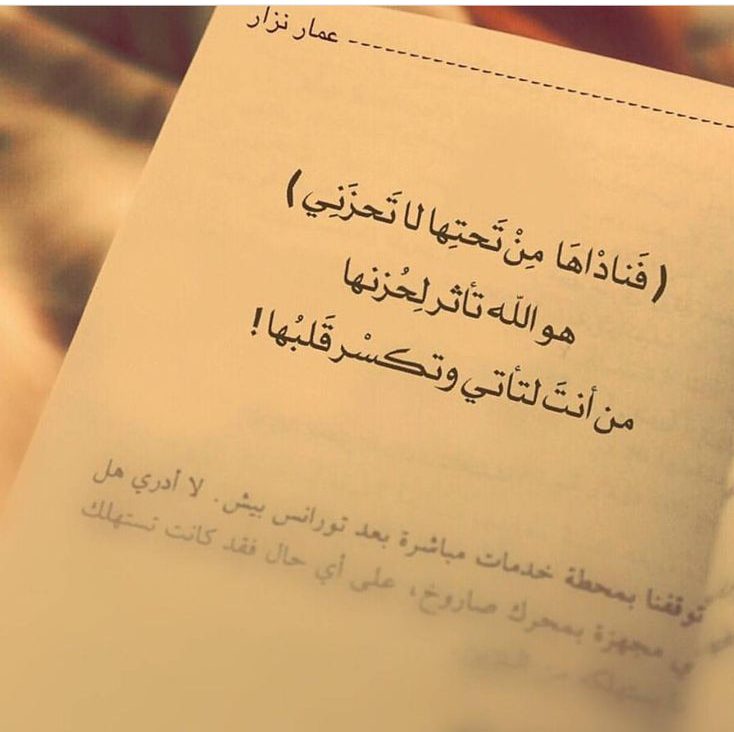 عمار نزار
(فَنادْاهَا مِنْ تَحتِها لا تَحزَنِي)
هو اللّه تأثر لِحُزنها
من أنتَ لتأتي وتكسْر قَلبُها!
توقفنا بمحطة خدمات مباشرة بعد تورانس بيش. لا أدري هل
ي مجهزة بمحرك صاروخ، على أي حال فقد كانت تستهلك